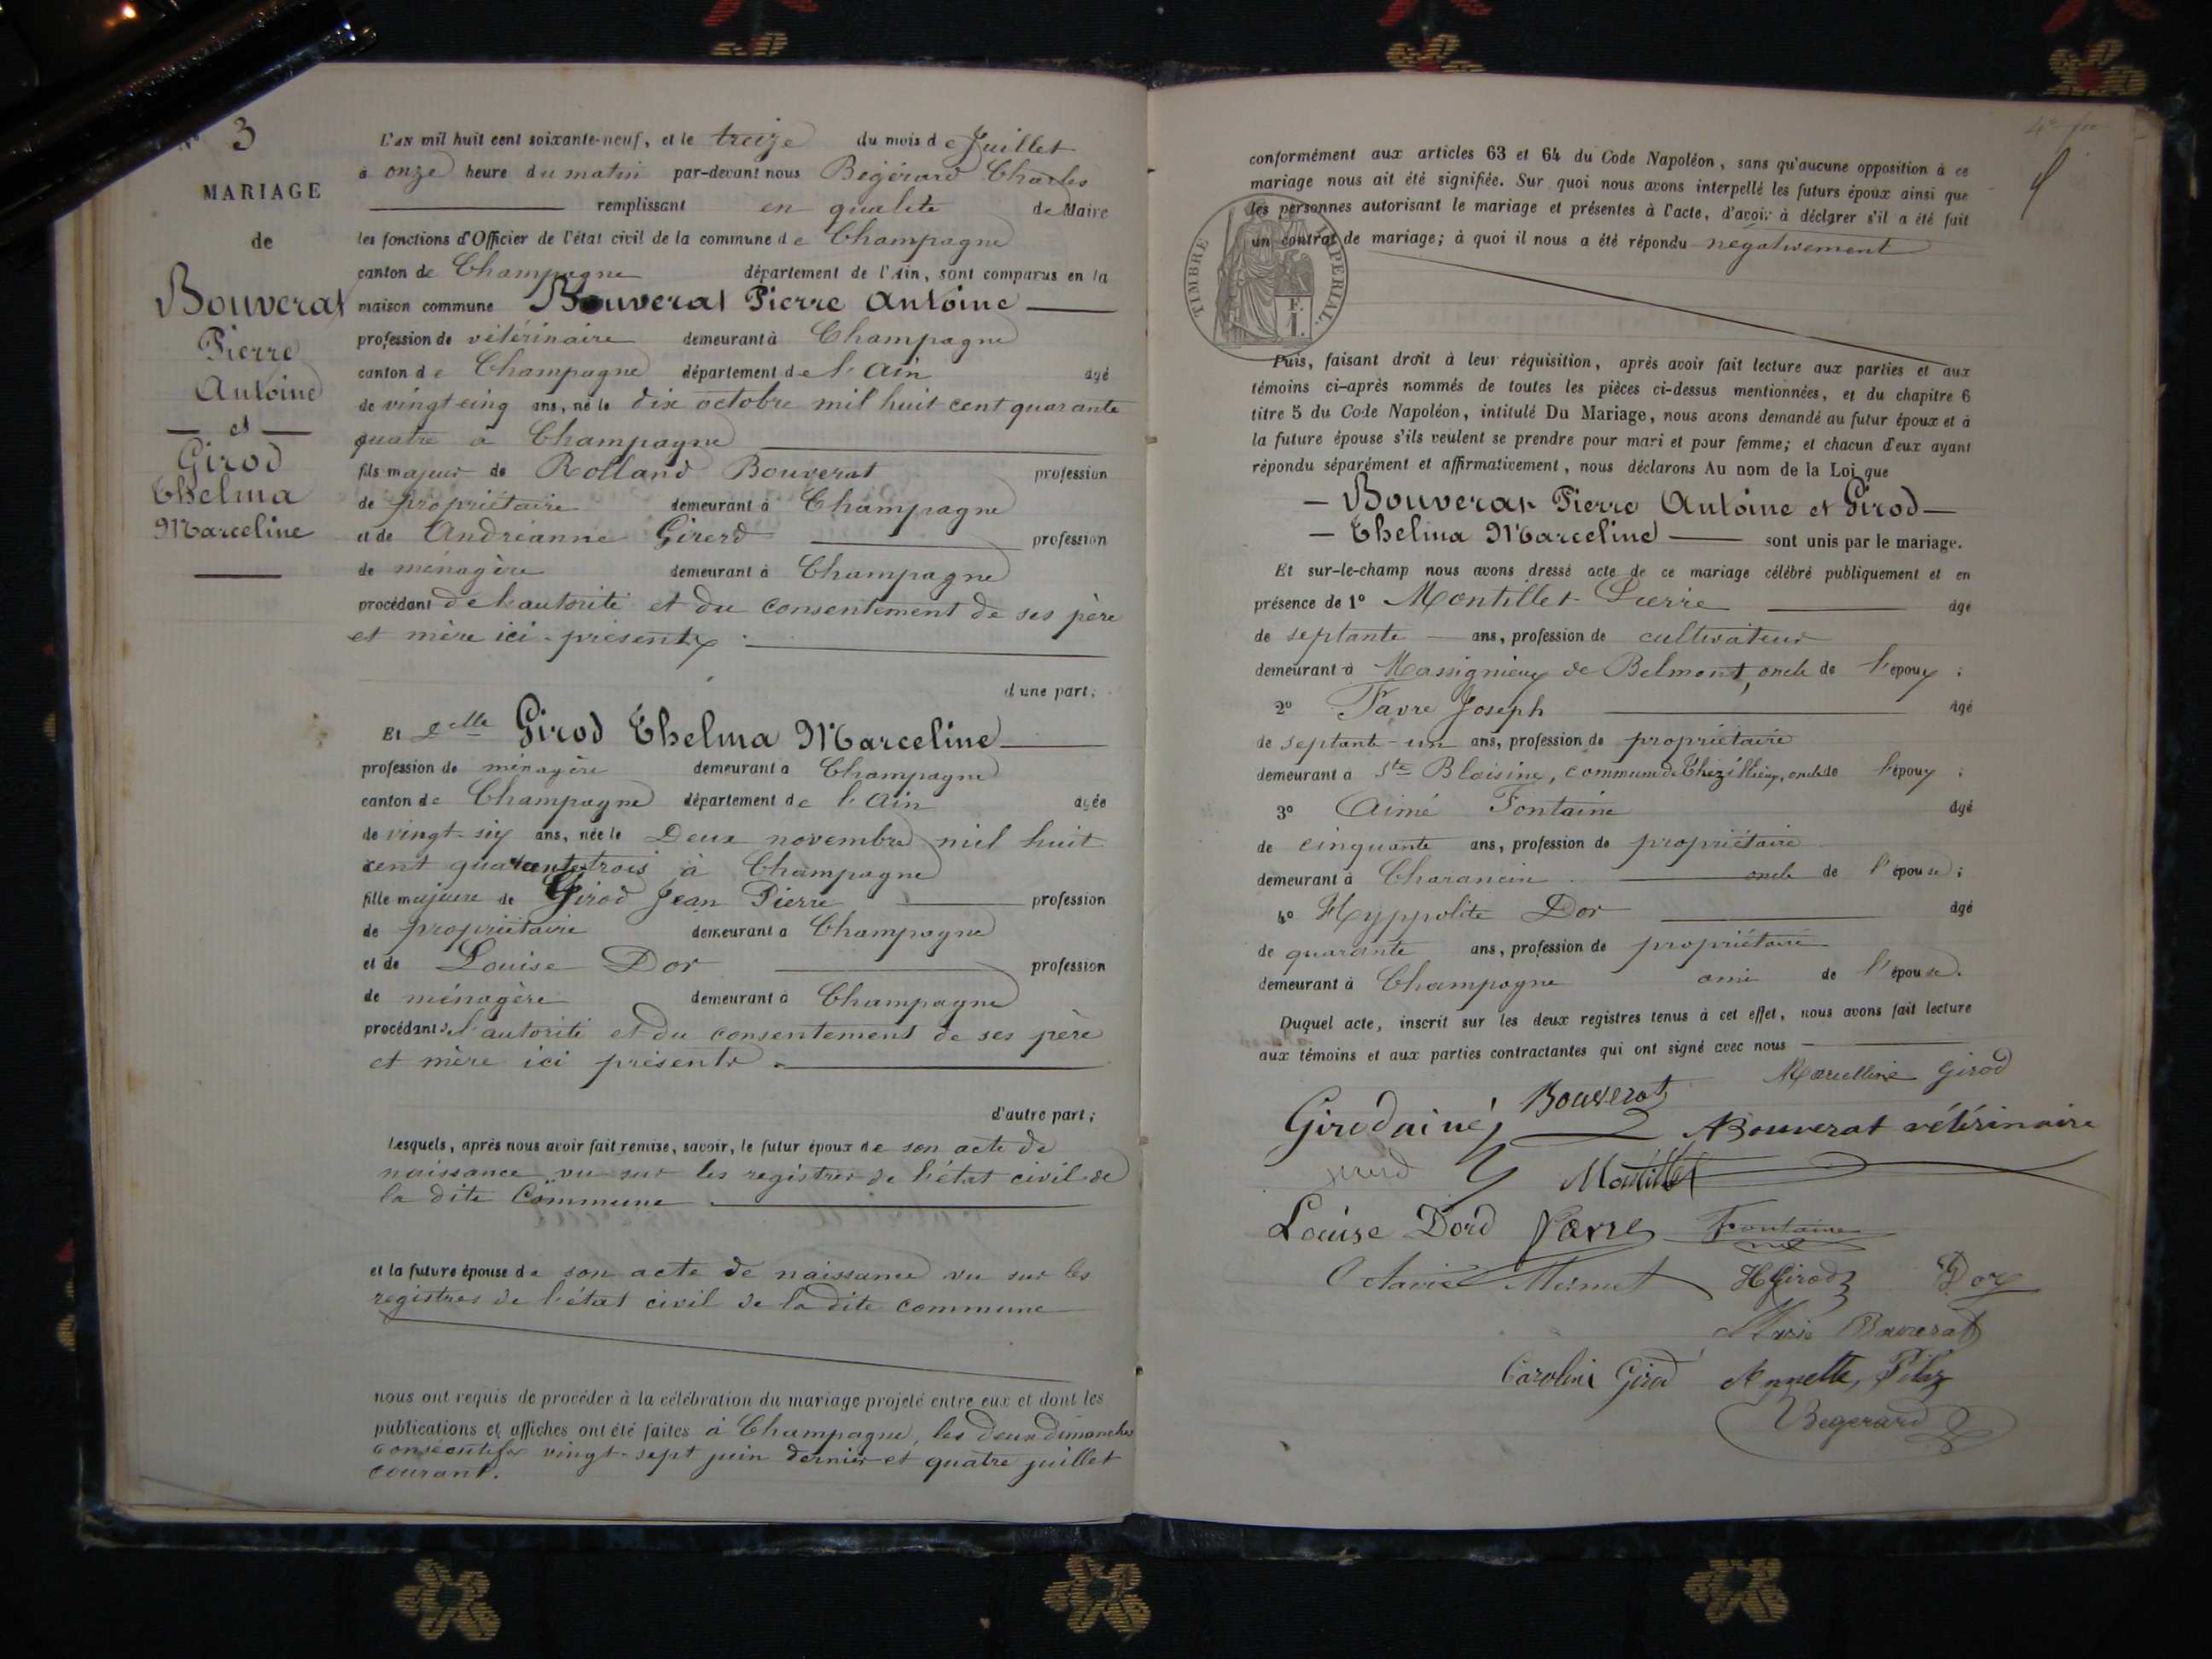 N° 3
MARIAGE
de
Bouverat
Pierre
Antoine
et
Girod
Thelma
Marceline
L'AN mil huit cent soixante-neuf, et le treize du mois de Juillet
à onze heure du matin par-devant nous Bégérard Charles
remplissant en qualité de Maire
les fonctions d'Officier de l'état civil de la commune de Champagne
canton de Champagne département de l'Ain, sont comparus en la
maison commune Bouverat Pierre Antoine
profession de vétérinaire demeurant à Champagne
canton de Champagne département de l'Ain âgé
de vingt cinq ans, né le dix octobre mil huit cent quarante
quatre à Champagne
fils majeur de Rolland Bouverat profession
de propriétaire demeurant à Champagne
et de Andréanne Girerd profession
de ménagère demeurant à Champagne
procédant de l'autorité et du consentement de ses père
et mère ici présents
d'une part;
Et Delle Girod Thelma Marceline
profession de ménagère demeurant à Champagne
canton de Champagne département de l'Ain agée
de vingt-six ans, née le Deux novembre mil huit
cent quarante trois à Champagne
fille majeure de Girod Jean Pierre profession
de propriétaire demeurant à Champagne
et de Louise Dor profession
de ménagère demeurant à Champagne
procédant de l'autorité et du consentement de ses père
et mère ici présents
d'autre part;
Lesquels, après nous avoir fait remise, savoir, le futur époux de son acte de
naissance vu sur les registres de l'état civil de
la dite Commune
et la future épouse de son acte de naissance vu sur les
registres de l'état civil de la dite commune
nous ont requis de procéder à la célébration du mariage projeté entre eux et dont les
publications et affiches ont été faites à Champagne, les deux dimanches
consécutifs vingt-sept juin dernier et quatre juillet
courant.
conformément aux articles 63 et 64 du Code Napoléon, sans qu'aucune opposition à ce
mariage nous ait été signifiée. Sur quoi nous avons interpellé les futurs époux ainsi que
les personnes autorisant le mariage et présentes à l'acte, d'avoir à déclarer s'il a été fait
un contrat de mariage; à quoi il nous a été répondu négativement
TIMBRE IMPERIAL
Puis, faisant droit à leur réquisition, après avoir fait lecture aux parties et aux
témoins ci-après nommés de toutes les pièces ci-dessus mentionnées, et du chapitre 6
titre 5 du Code Napoléon, intitulé Du Mariage, nous avons demandé au futur époux et à
la future épouse s'ils veulent se prendre pour mari et pour femme; et chacun d'eux ayant
répondu séparément et affirmativement, nous déclarons Au nom de la Loi que
Bouverat Pierre Antoine et Girod
Thelma Marceline sont unis par le mariage.
Et sur-le-champ nous avons dressé acte de ce mariage célébré publiquement et en
présence de 1° Montillet Pierre âgé
de septante ans, profession de cultivateur
demeurant à Massignieux de Belmont, oncle de l'époux;
2° Favre Joseph âgé
de septante-un ans, profession de propriétaire
demeurant à Ste Blaisine, commune de Thézillieux, oncle de l'époux;
3° Aimé Fontaine âgé
de cinquante ans, profession de propriétaire
demeurant à Charancin oncle de l'épouse;
4° Hyppolite Dor âgé
de quarante ans, profession de propriétaire
demeurant à Champagne ami de l'épouse.
Duquel acte, inscrit sur les deux registres tenus à cet effet, nous avons fait lecture
aux témoins et aux parties contractantes qui ont signé avec nous
Marcelline Girod
Girod ainé Bouverat ABouverat vétérinaire
Montillet
Louise Dord Favre Fontaine
Octavie HGirod Dor
Marie Bouverat
Caroline Girod Annette
Begerard